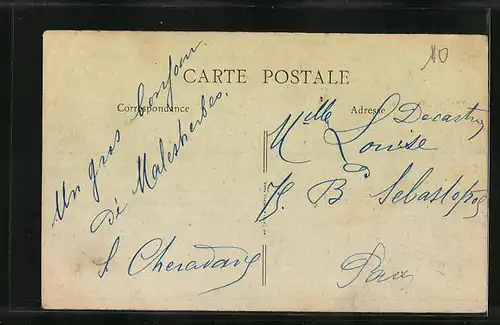 CARTE POSTALE
Correspondance
Adresse
Un gros bonjour
de Malesherbes.
Mlle L Decastro
Louise
Bd Sebastopol
Paris